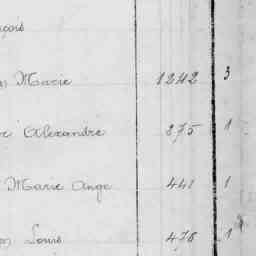 çois
Marie 1242 3
Alexandre 875 1
Marie Ange 441 1
Louis 476 1